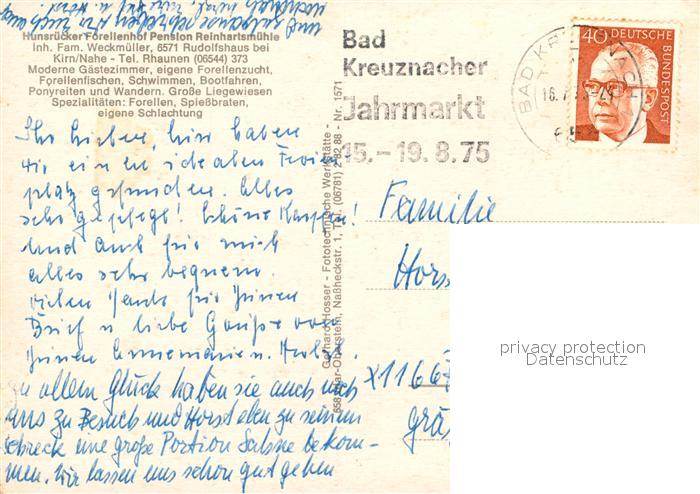 Hunsrücker Forellenhof Pension Reinhartsmühle
Inh. Fam. Weckmüller, 6571 Rudolfshaus bei
Kirn/Nahe - Tel. Rhaunen (06544) 373
Moderne Gästezimmer, eigene Forellenzucht,
Forellenfischen, Schwimmen, Bootfahren,
Ponyreiten und Wandern. Große Liegewiesen
Spezialitäten: Forellen, Spießbraten,
eigene Schlachtung
Ihr Lieben, hier haben
wir einen idealen Ferien
platz gefunden. Alles
sehr gepflegt!
Und auch für mich
alles sehr bequem.
Vielen Dank für Ihren
Brief u liebe Grüße von
Ihnen Annemarie u.
zu allem Glück haben sie auch noch
uns zu Besuch und Horst eben zu seinem
Schreck eine große Portion Sahne bekom-
men. Wir lassen uns schon gut gehen
Gerhard Hosser - Fototechnische Werkstätte
658 Idar-Oberstein, Naßheckstr. 1, Tel. (06781) 2 - Nr. 1571
Bad
Kreuznacher
Jahrmarkt
15.-19.8.75
BAD KREUZNACH
40 DEUTSCHE
BUNDESPOST
Familie
Hors
X1166
Grä
privacy protection
Datenschutz